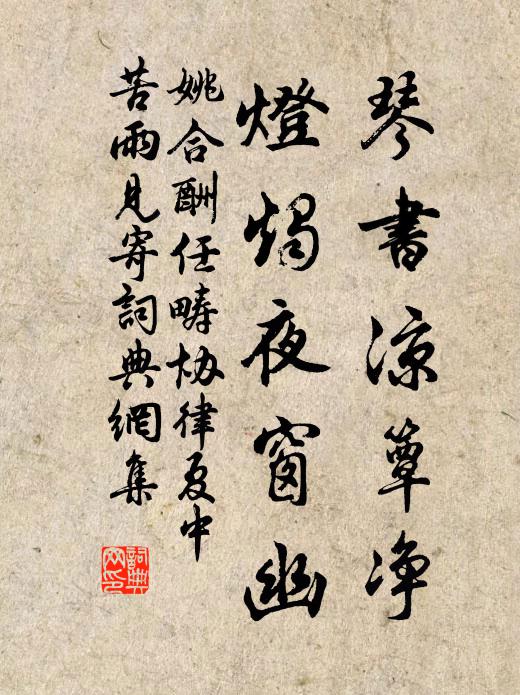 琴書涼簟净
燈燭夜窗幽
姚合酬任疇协律夏中
苦雨見寄詞典網集
詞典
网印